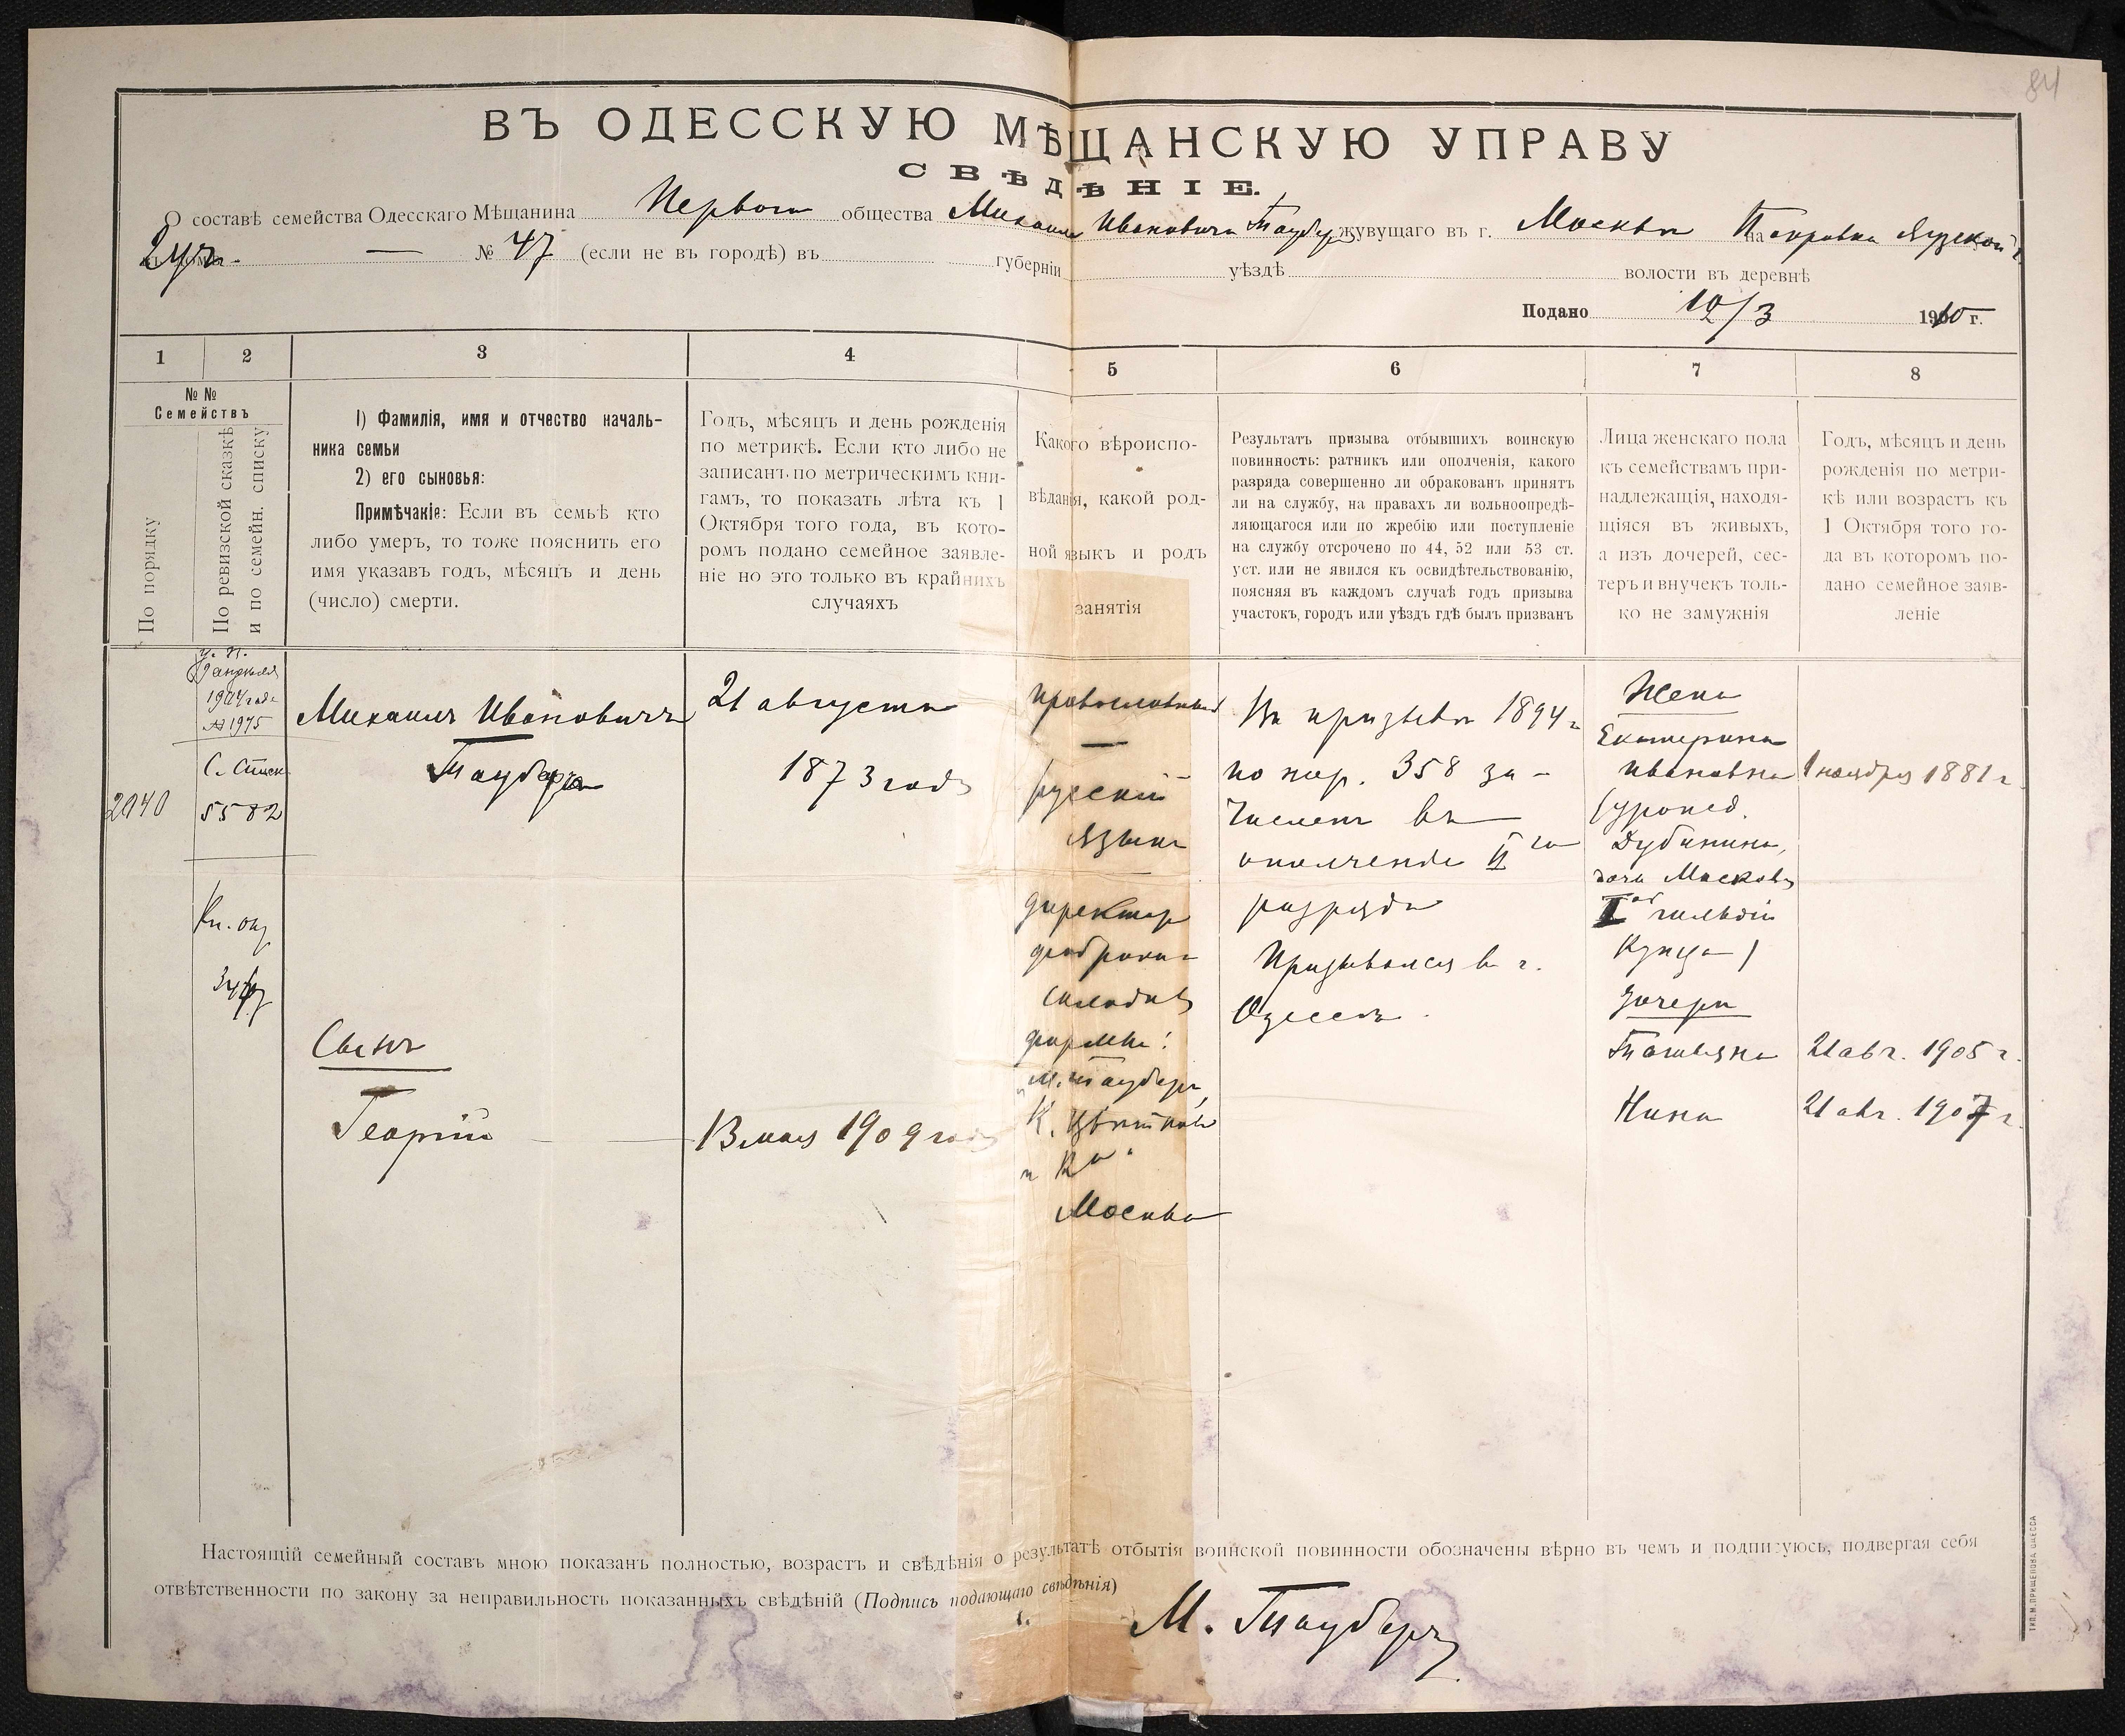 84
ВЪ ОДЕССКУЮ МѢЩАНСКУЮ УПРАВУ
СВѢДѢНІЕ.
О составѣ семейства Одесскаго Мѣщанина Перваго общества Михаила Ивановича Тауберъ жувущаго въ г. Москвѣ на Покровка Яузской
2 уч. — № 47 (если не въ городѣ) въ губерніи уѣздѣ волости въ деревнѣ
Подано 12/3 1910 г.
1 2 3 4 5 6 7 8
№ №
Семействъ
По порядку
По ревизской сказкѣ
и по семейн. списку
1) Фамилія, имя и отчество началь-
ника семьи
2) его сыновья:
Примѣчаніе: Если въ семьѣ кто
либо умеръ, то тоже пояснить его
имя указавъ годъ, мѣсяцъ и день
(число) смерти.
Годъ, мѣсяцъ и день рожденія
по метрикѣ. Если кто либо не
записанъ по метрическимъ кни-
гамъ, то показать лѣта къ 1
Октября того года, въ кото-
ромъ подано семейное заявле-
ніе но это только въ крайнихъ
случаяхъ
Какого вѣроиспо-
вѣданія, какой род-
ной языкъ и родъ
занятія
Результатъ призыва отбывшихъ воинскую
повинность: ратникъ или ополченія, какого
разряда совершенно ли обракованъ принятъ
ли на службу, на правахъ ли вольноопредѣ-
ляющагося или по жребію или поступленіе
на службу отсрочено по 44, 52 или 53 ст.
уст. или не явился къ освидѣтельствованію,
поясняя въ каждомъ случаѣ годъ призыва
участокъ, городъ или уѣздъ гдѣ былъ призванъ
Лица женскаго пола
къ семействамъ при-
надлежащія, находя-
щіяся въ живыхъ,
а изъ дочерей, сес-
теръ и внучекъ толь-
ко не замужнія
Годъ, мѣсяцъ и день
рожденія по метри-
кѣ или возрастъ къ
1 Октября того го-
да въ которомъ по-
дано семейное заяв-
леніе
2940
У. П.
9 апрѣля
1904 года
№ 1975
С. Списк
5582
Михаилъ Ивановичъ
Тауберъ
Сынъ
Георгій
21 августа
1873 года
13 мая 1909 года
православный
—
русскій
языкъ
директор
фабрики
складовъ
фирмы:
„М. Тауберъ,
К. Цвѣтковъ
и Ко“
Москва
Въ призывъ 1894 г
по жер. 358 за-
численъ въ
ополченіе II го
разряда
Призывался въ г.
Одессѣ.
Жена
Екатерина
Ивановна
(урожд.
Дубинина,
дочь Москов
I ой гильдіи
купца)
Дочери
Татьяна
Нина
1 ноября 1881 г
21 авг. 1905 г.
21 авг. 1907 г.
Настоящій семейный составъ мною показанъ полностью, возрастъ и свѣдѣнія о результатѣ отбытія воинской повинности обозначены вѣрно въ чемъ и подписуюсь, подвергая себя
отвѣтственности по закону за неправильность показанныхъ свѣдѣній (Подпись подающаго свѣдѣнія)
М. Тауберъ
ТИП. М. ПРИЩЕПОВА ОДЕССА